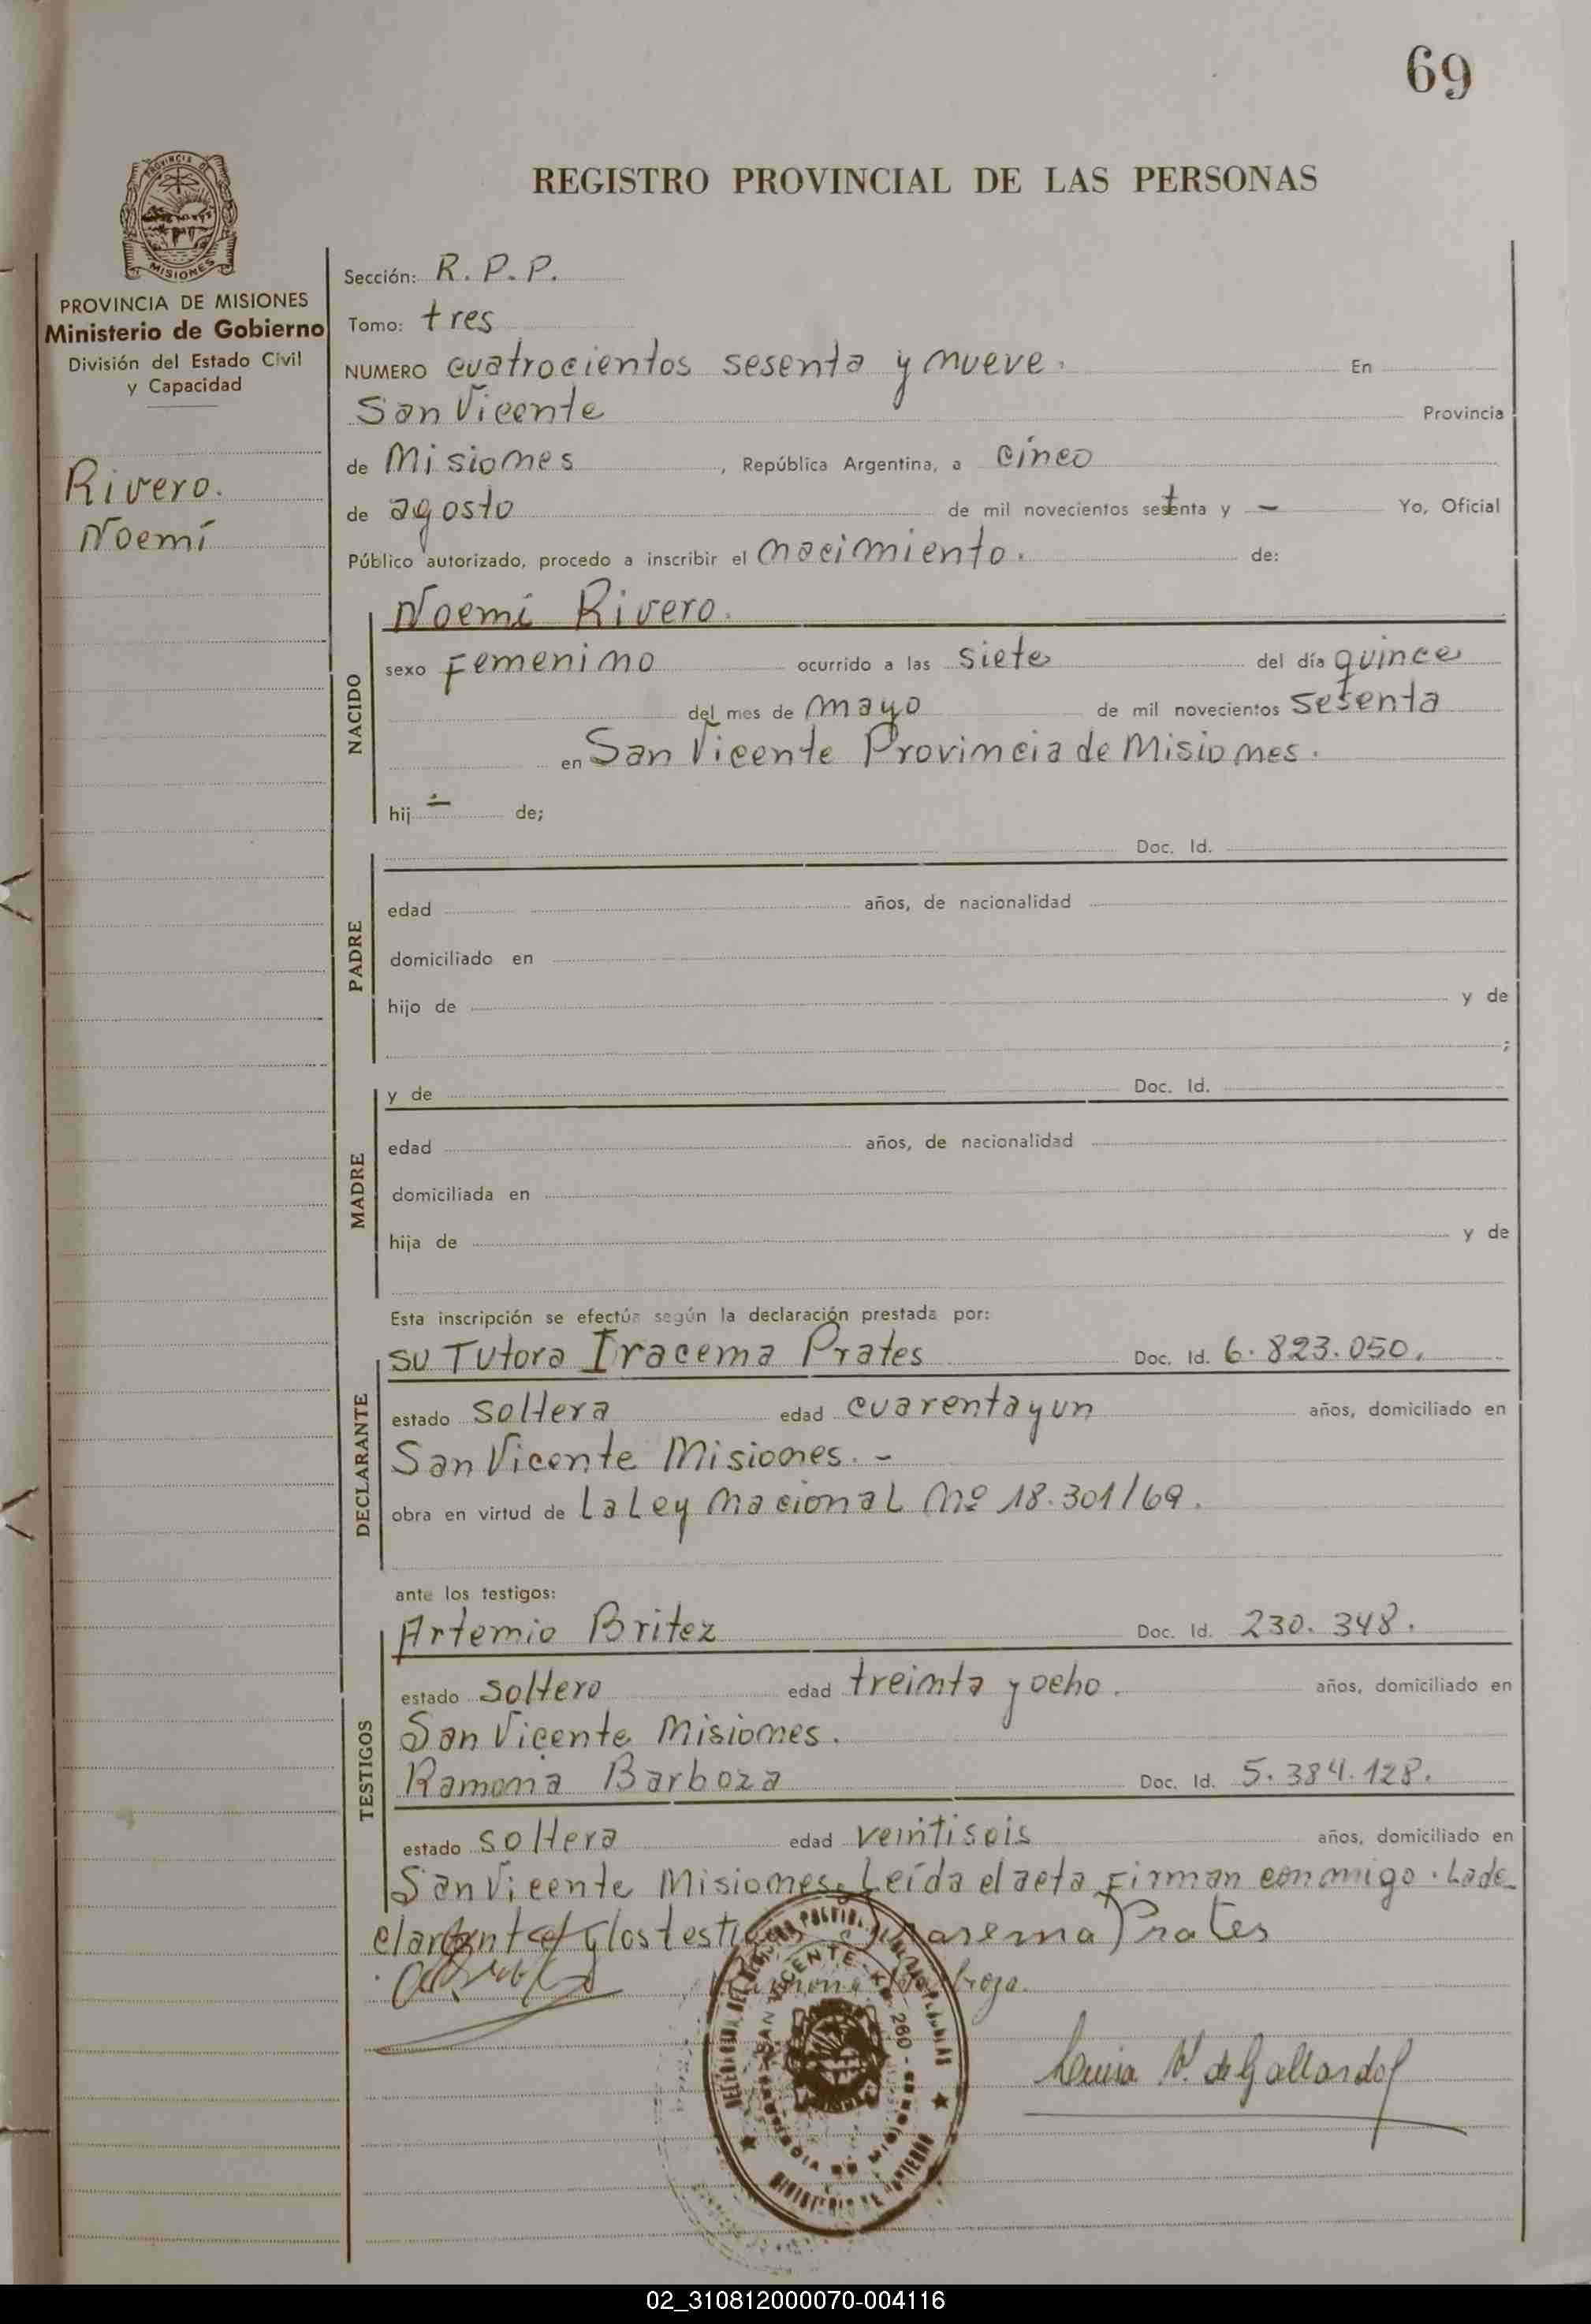 69
REGISTRO PROVINCIAL DE LAS PERSONAS
PROVINCIA DE MISIONES
Ministerio de Gobierno
División del Estado Civil
y Capacidad
Rivero.
Noemí
Sección: R. P. P.
Tomo: tres
NUMERO cuatrocientos sesenta y nueve. En
San Vicente Provincia
de Misiones, República Argentina, a cinco
de agosto de mil novecientos setenta y - Yo, Oficial
Público autorizado, procedo a inscribir el nacimiento. de:
NACIDO
Noemí Rivero.
sexo Femenino ocurrido a las siete del día quince
del mes de mayo de mil novecientos setenta
en San Vicente Provincia de Misiones.
hij de;
PADRE
Doc. Id.
edad años, de nacionalidad
domiciliado en
hijo de y de
;
MADRE
y de Doc. Id.
edad años, de nacionalidad
domiciliada en
hija de y de
Esta inscripción se efectúa según la declaración prestada por:
DECLARANTE
su Tutora Iracema Prates Doc. Id. 6.823.050.
estado soltera edad cuarenta y un años, domiciliado en
San Vicente Misiones. -
obra en virtud de La Ley Nacional Nº 18.301/69.
ante los testigos:
TESTIGOS
Artemio Britez Doc. Id. 230.348.
estado soltero edad treinta y ocho. años, domiciliado en
San Vicente Misiones.
Ramona Barboza Doc. Id. 5.384.128.
estado soltera edad veintiseis años, domiciliado en
San Vicente Misiones. Leída el acta Firman conmigo. La de
clarante y los testi Prates
SAN VICENTE - K. 260 -
Luisa V. de Gallardo
02_310812000070-004116